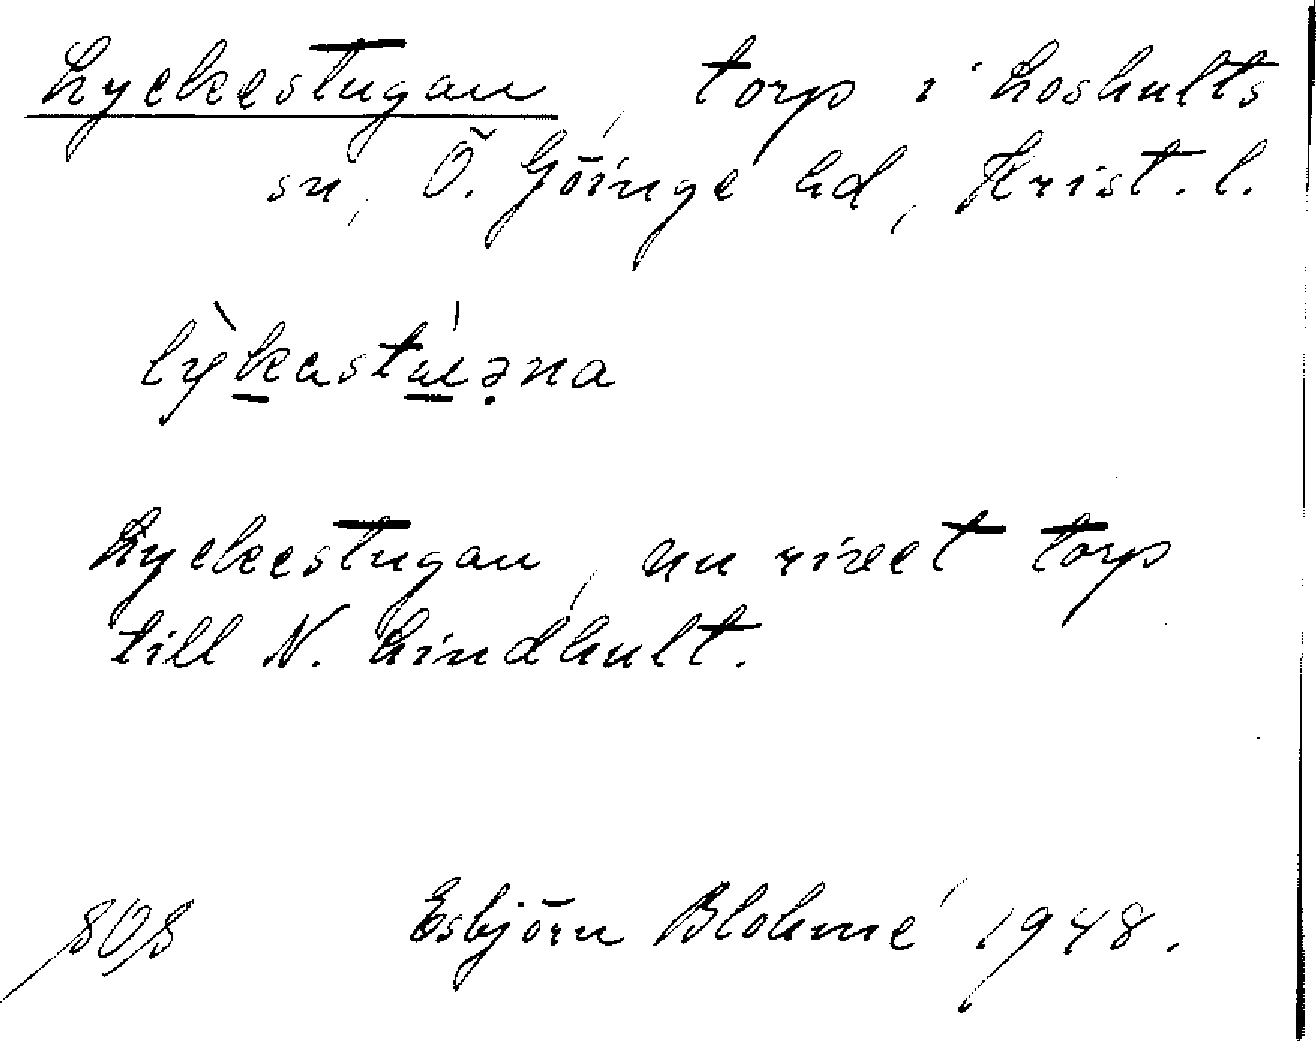 Lyckestugan, torp i Loshults
sn, Ö. Göinge hd, Krist. l.
lỳkastúəna
Lyckestugan, nu rivet torp
till N. Lindhult.
808 Esbjörn Blohmé 1948.